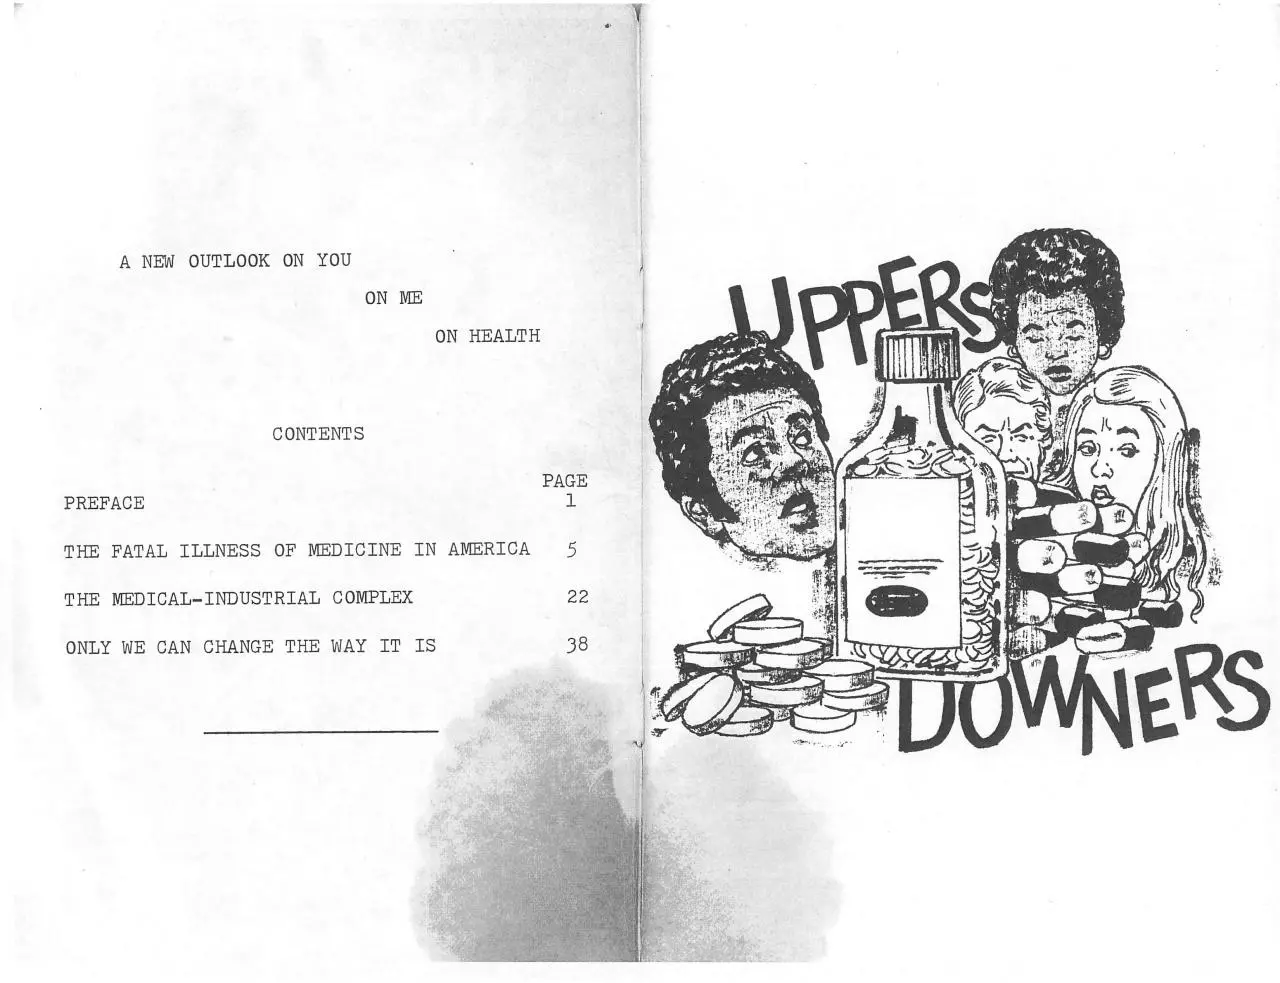 A NEW OUTLOOK ON YOU
ON ME
ON HEALTH
CONTENTS
PAGE
PREFACE 1
THE FATAL ILLNESS OF MEDICINE IN AMERICA 5
THE MEDICAL-INDUSTRIAL COMPLEX 22
ONLY WE CAN CHANGE THE WAY IT IS 38
UPPERS
DOWNERS